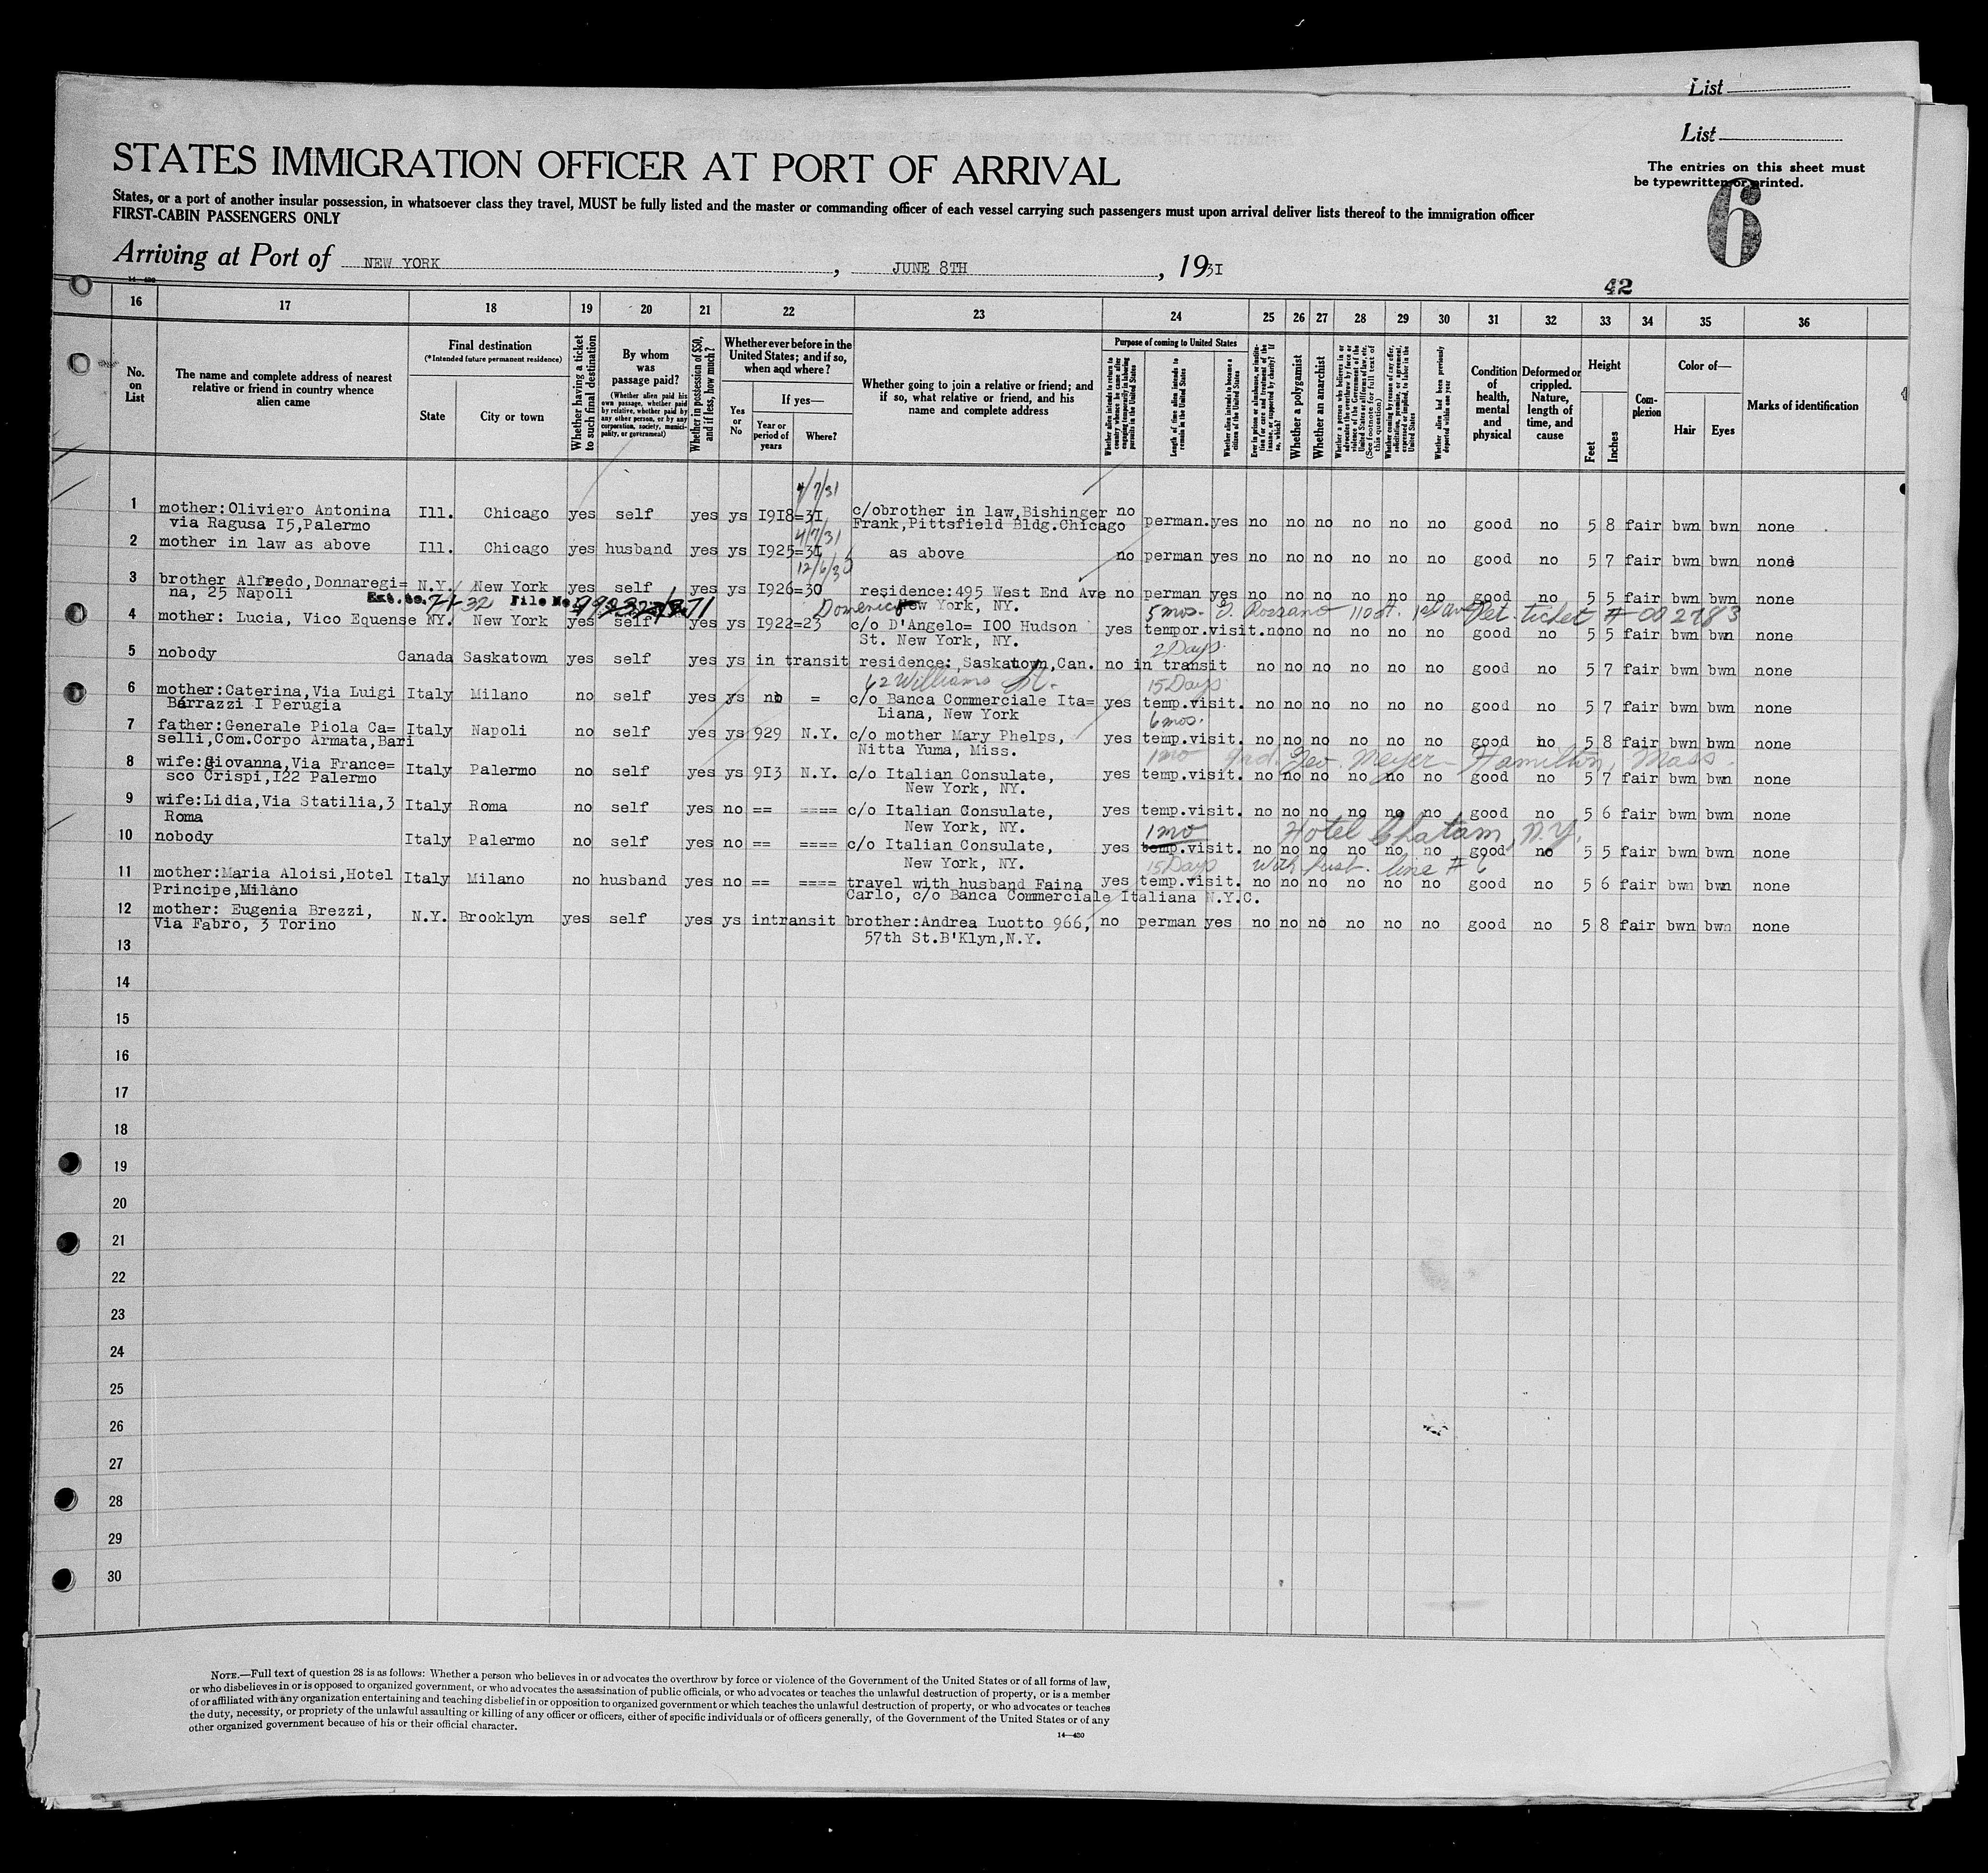 List
List
The entries on this sheet must
be typewritten or printed.
6
STATES IMMIGRATION OFFICER AT PORT OF ARRIVAL
States, or a port of another insular possession, in whatsoever class they travel, MUST be fully listed and the master or commanding officer of each vessel carrying such passengers must upon arrival deliver lists thereof to the immigration officer
FIRST-CABIN PASSENGERS ONLY
Arriving at Port of NEW YORK, JUNE 8TH, 1931
42
16 17 18 19 20 21 22 23 24 25 26 27 28 29 30 31 32 33 34 35 36
No. on List
The name and complete address of nearest relative or friend in country whence alien came
Final destination
(*Intended future permanent residence)
State
City or town
Whether having a ticket to such final destination
By whom was passage paid?
(Whether alien paid his own passage, whether paid by relative, whether paid by any other person, or by any corporation, society, municipality, or government)
Whether in possession of $50, and if less, how much?
Whether ever before in the United States; and if so, when and where?
Yes or No
If yes—
Year or period of years
Where?
Whether going to join a relative or friend; and if so, what relative or friend, and his name and complete address
Purpose of coming to United States
Whether alien intends to return to country whence he came after engaging temporarily in laboring pursuits in the United States
Length of time alien intends to remain in the United States
Whether alien intends to become a citizen of the United States
Ever in prison or almshouse, or institution for care and treatment of the insane, or supported by charity? If so, which?
Whether a polygamist
Whether an anarchist
Whether a person who believes in or advocates the overthrow by force or violence of the Government of the United States or all forms of law, etc. (See footnote for full text of this question)
Whether coming by reason of any offer, solicitation, promise, or agreement, expressed or implied, to labor in the United States
Whether alien had been previously deported within one year
Condition of health, mental and physical
Deformed or crippled. Nature, length of time, and cause
Height
Feet
Inches
Complexion
Color of—
Hair
Eyes
Marks of identification
4/7/31
1 mother:Oliviero Antonina Ill. Chicago yes self yes ys I918=31 c/obrother in law,Bishinger no perman. yes no no no no no no good no 5 8 fair bwn bwn none
via Ragusa I5,Palermo Frank,Pittsfield Bldg.Chicago
4/7/31
2 mother in law as above Ill. Chicago yes husband yes ys I925=31 as above no perman yes no no no no no no good no 5 7 fair bwn bwn none
12/6/30
3 brother Alfredo,Donnaregi= N.Y. New York yes self yes ys I926=30 residence:495 West End Ave no perman yes no no no no no no good no 5 5 fair bwn bwn none
na, 25 Napoli New York, NY.
Ext. to. 7-1-32 File No.
Domenico 5 mos. Rossano 110 st. 1st ave ticket # 002783
4 mother: Lucia, Vico Equense NY. New York yes self yes ys I922=23 c/o D'Angelo= I00 Hudson yes tempor.visit. no no no no no no no good no 5 5 fair bwn bwn none
St. New York, NY.
2 Days
5 nobody Canada Saskatown yes self yes ys in transit residence: Saskatown,Can. no in transit no no no no no no good no 5 7 fair bwn bwn none
62 Williams St. 15 Days
6 mother:Caterina,Via Luigi Italy Milano no self yes ys no = c/o Banca Commerciale Ita= yes temp.visit. no no no no no no good no 5 7 fair bwn bwn none
Barrazzi I Perugia Liana, New York
6 mos.
7 father:Generale Piola Ca= Italy Napoli no self yes ys 929 N.Y. c/o mother Mary Phelps, yes temp.visit. no no no no no no good no 5 8 fair bwn bwn none
selli,Com.Corpo Armata,Bari Nitta Yuma, Miss.
1 mo Geo. Meyer- Hamilton, Mass.
8 wife:Giovanna,Via France= Italy Palermo no self yes ys 9I3 N.Y. c/o Italian Consulate, yes temp.visit. no no no no no no good no 5 7 fair bwn bwn none
sco Crispi,I22 Palermo New York, NY.
9 wife:Lidia,Via Statilia,3 Italy Roma no self yes no == ==== c/o Italian Consulate, yes temp.visit. no no no no no no good no 5 6 fair bwn bwn none
Roma New York, NY.
1 mo Hotel Chatam, N.Y.
10 nobody Italy Palermo no self yes no == ==== c/o Italian Consulate, yes temp.visit. no no no no no no good no 5 5 fair bwn bwn none
New York, NY.
15 Days with hust. line # 6
11 mother:Maria Aloisi,Hotel Italy Milano no husband yes no == ==== travel with husband Faina yes temp.visit. no no no no no no good no 5 6 fair bwn bwn none
Principe,Milano Carlo, c/o Banca Commerciale Italiana N.Y.C.
12 mother: Eugenia Brezzi, N.Y. Brooklyn yes self yes ys intransit brother:Andrea Luotto 966, no perman yes no no no no no no good no 5 8 fair bwn bwn none
Via Fabro, 3 Torino 57th St.B'Klyn,N.Y.
13
14
15
16
17
18
19
20
21
22
23
24
25
26
27
28
29
30
NOTE.—Full text of question 28 is as follows: Whether a person who believes in or advocates the overthrow by force or violence of the Government of the United States or of all forms of law,
or who disbelieves in or is opposed to organized government, or who advocates the assassination of public officials, or who advocates or teaches the unlawful destruction of property, or is a member
of or affiliated with any organization entertaining and teaching disbelief in or opposition to organized government or which teaches the unlawful destruction of property, or who advocates or teaches
the duty, necessity, or propriety of the unlawful assaulting or killing of any officer or officers, either of specific individuals or of officers generally, of the Government of the United States or of any
other organized government because of his or their official character.
14—430